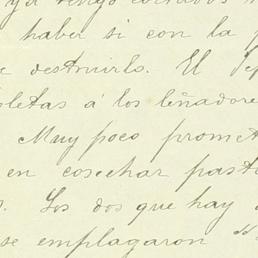 ya tengo
haber si con la
destruirlo. El
á los leñadore
Muy poco promet
en cosechar past
Los dos que hay
se emplagaron "